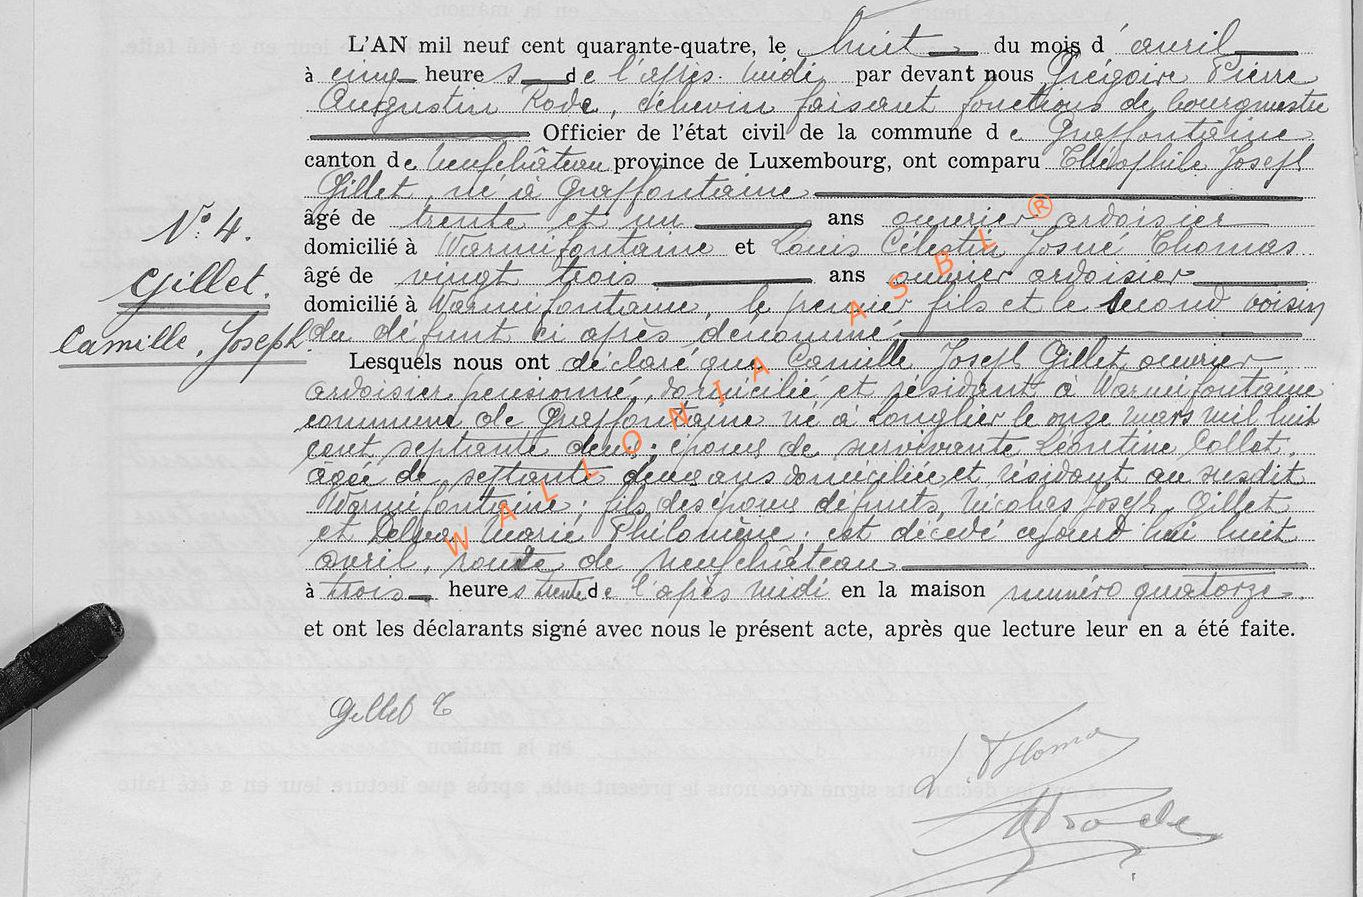 L'AN mil neuf cent quarante-quatre, le huit du mois d'avril
à cinq heures de l'après-midi, par devant nous Grégoire Pierre
Augustin Rode, échevin faisant fonctions de bourgmestre
Officier de l'état civil de la commune de Graffontaine
canton de Neufchâteau province de Luxembourg, ont comparu Théophile Joseph
Gillet, né à Graffontaine
N° 4.
âgé de trente et un ans ouvrier ardoisier
domicilié à Warmifontaine et Louis Célestin Josué Thomas
Gillet.
âgé de vingt trois ans ouvrier ardoisier
domicilié à Warmifontaine, le premier fils et le second voisin
Camille, Joseph.
du défunt ci après dénommé,
Lesquels nous ont déclaré que Camille Joseph Gillet, ouvrier
ardoisier pensionné, domicilié et résidant à Warmifontaine
commune de Graffontaine né à Longlier le onze mars mil huit
cent septante deux; époux de survivante Léontine Collet,
âgée de septante deux ans domiciliée et résidant au susdit
Warmifontaine; fils des époux défunts, Nicolas Joseph Gillet
et Marie Philomène; est décédé cejourd'hui huit
avril, route de Neufchâteau
à trois heures trente de l'après midi en la maison numéro quatorze
et ont les déclarants signé avec nous le présent acte, après que lecture leur en a été faite.
Gillet T
L. Thomas
Rode
WALLONIA ASBL ®